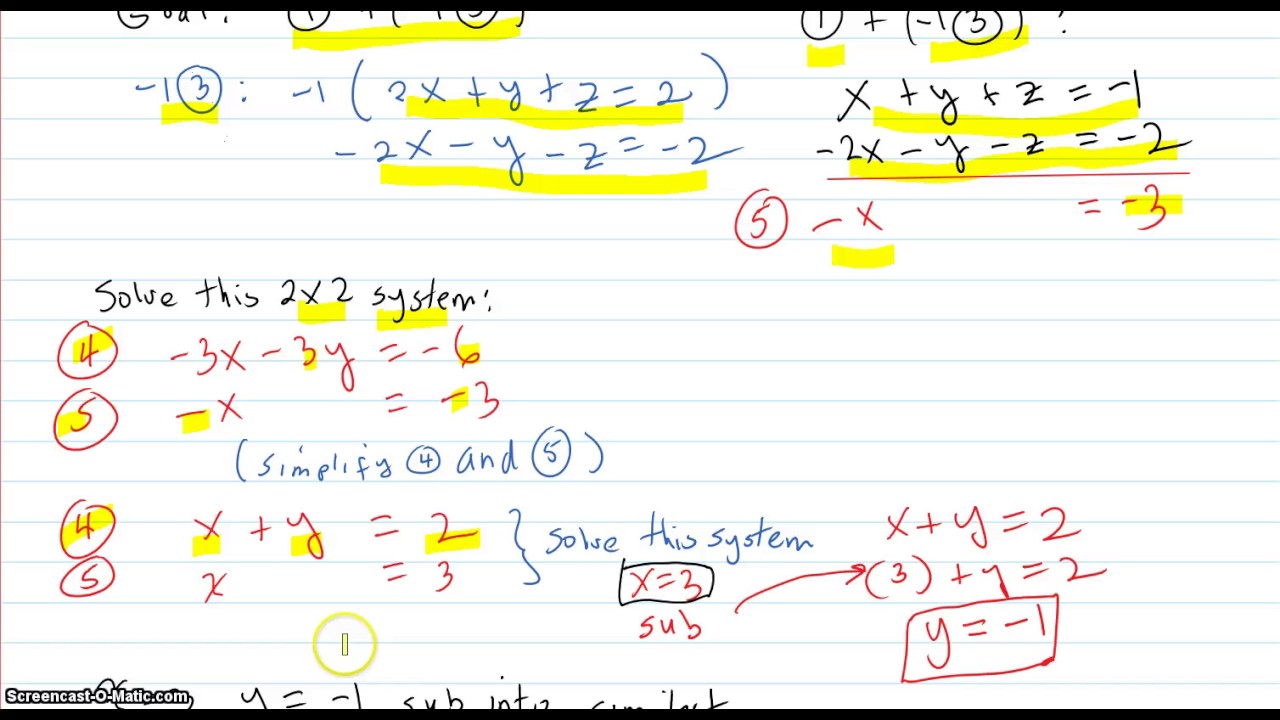 Goal: ① + (-1③)
① + (-1③) :
-1③ : -1 ( 2x + y + z = 2 )
-2x - y - z = -2
x + y + z = -1
-2x - y - z = -2
⑤ -x = -3
Solve this 2x2 system:
④ -3x - 3y = -6
⑤ -x = -3
(simplify ④ and ⑤)
④ x + y = 2
⑤ x = 3
} solve this system
x=3
sub
x + y = 2
(3) + y = 2
y = -1
y = -1 sub into simplest
Screencast-O-Matic.com